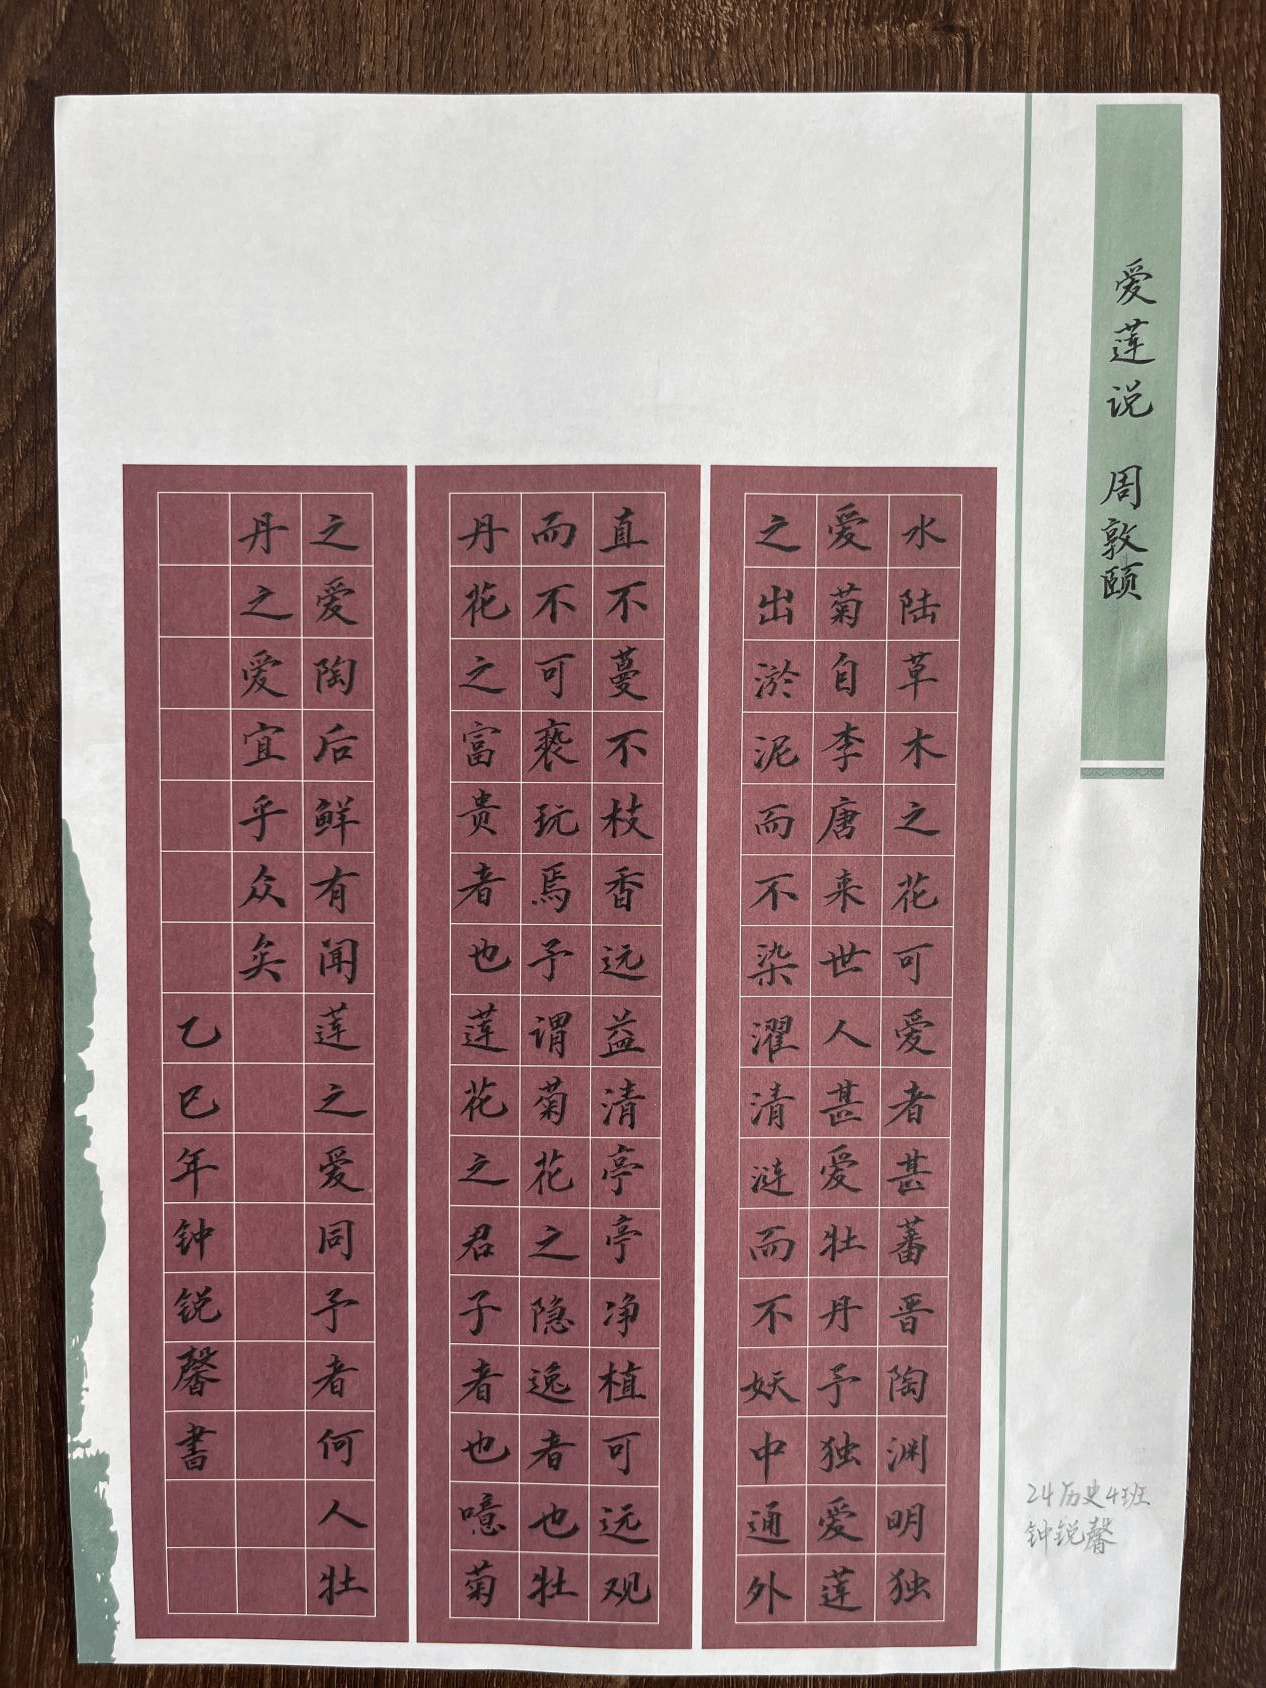 爱莲说 周敦颐
水陆草木之花可爱者甚蕃晋陶渊明独
爱菊自李唐来世人甚爱牡丹予独爱莲
之出淤泥而不染濯清涟而不妖中通外
直不蔓不枝香远益清亭亭净植可远观
而不可亵玩焉予谓菊花之隐逸者也牡
丹花之富贵者也莲花之君子者也噫菊
之爱陶后鲜有闻莲之爱同予者何人牡
丹之爱宜乎众矣
乙巳年钟锐馨书
24历史4班
钟锐馨